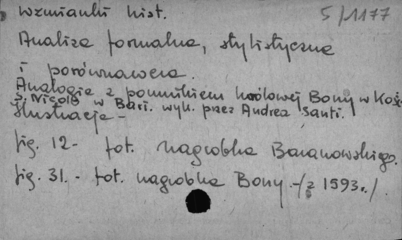 wzmianki hist. 5/1177
Analiza formalna, stylistyczna
i porównawcza.
Analogie z pomnikiem królowej Bony w Koś.
S. Nicola w Bari. wyk. przez Andrea Santi.
Ilustracje -
fig. 12 - fot. nagrobka Baranowskiego.
fig. 31. - fot. nagrobka Bony -/z 1593./